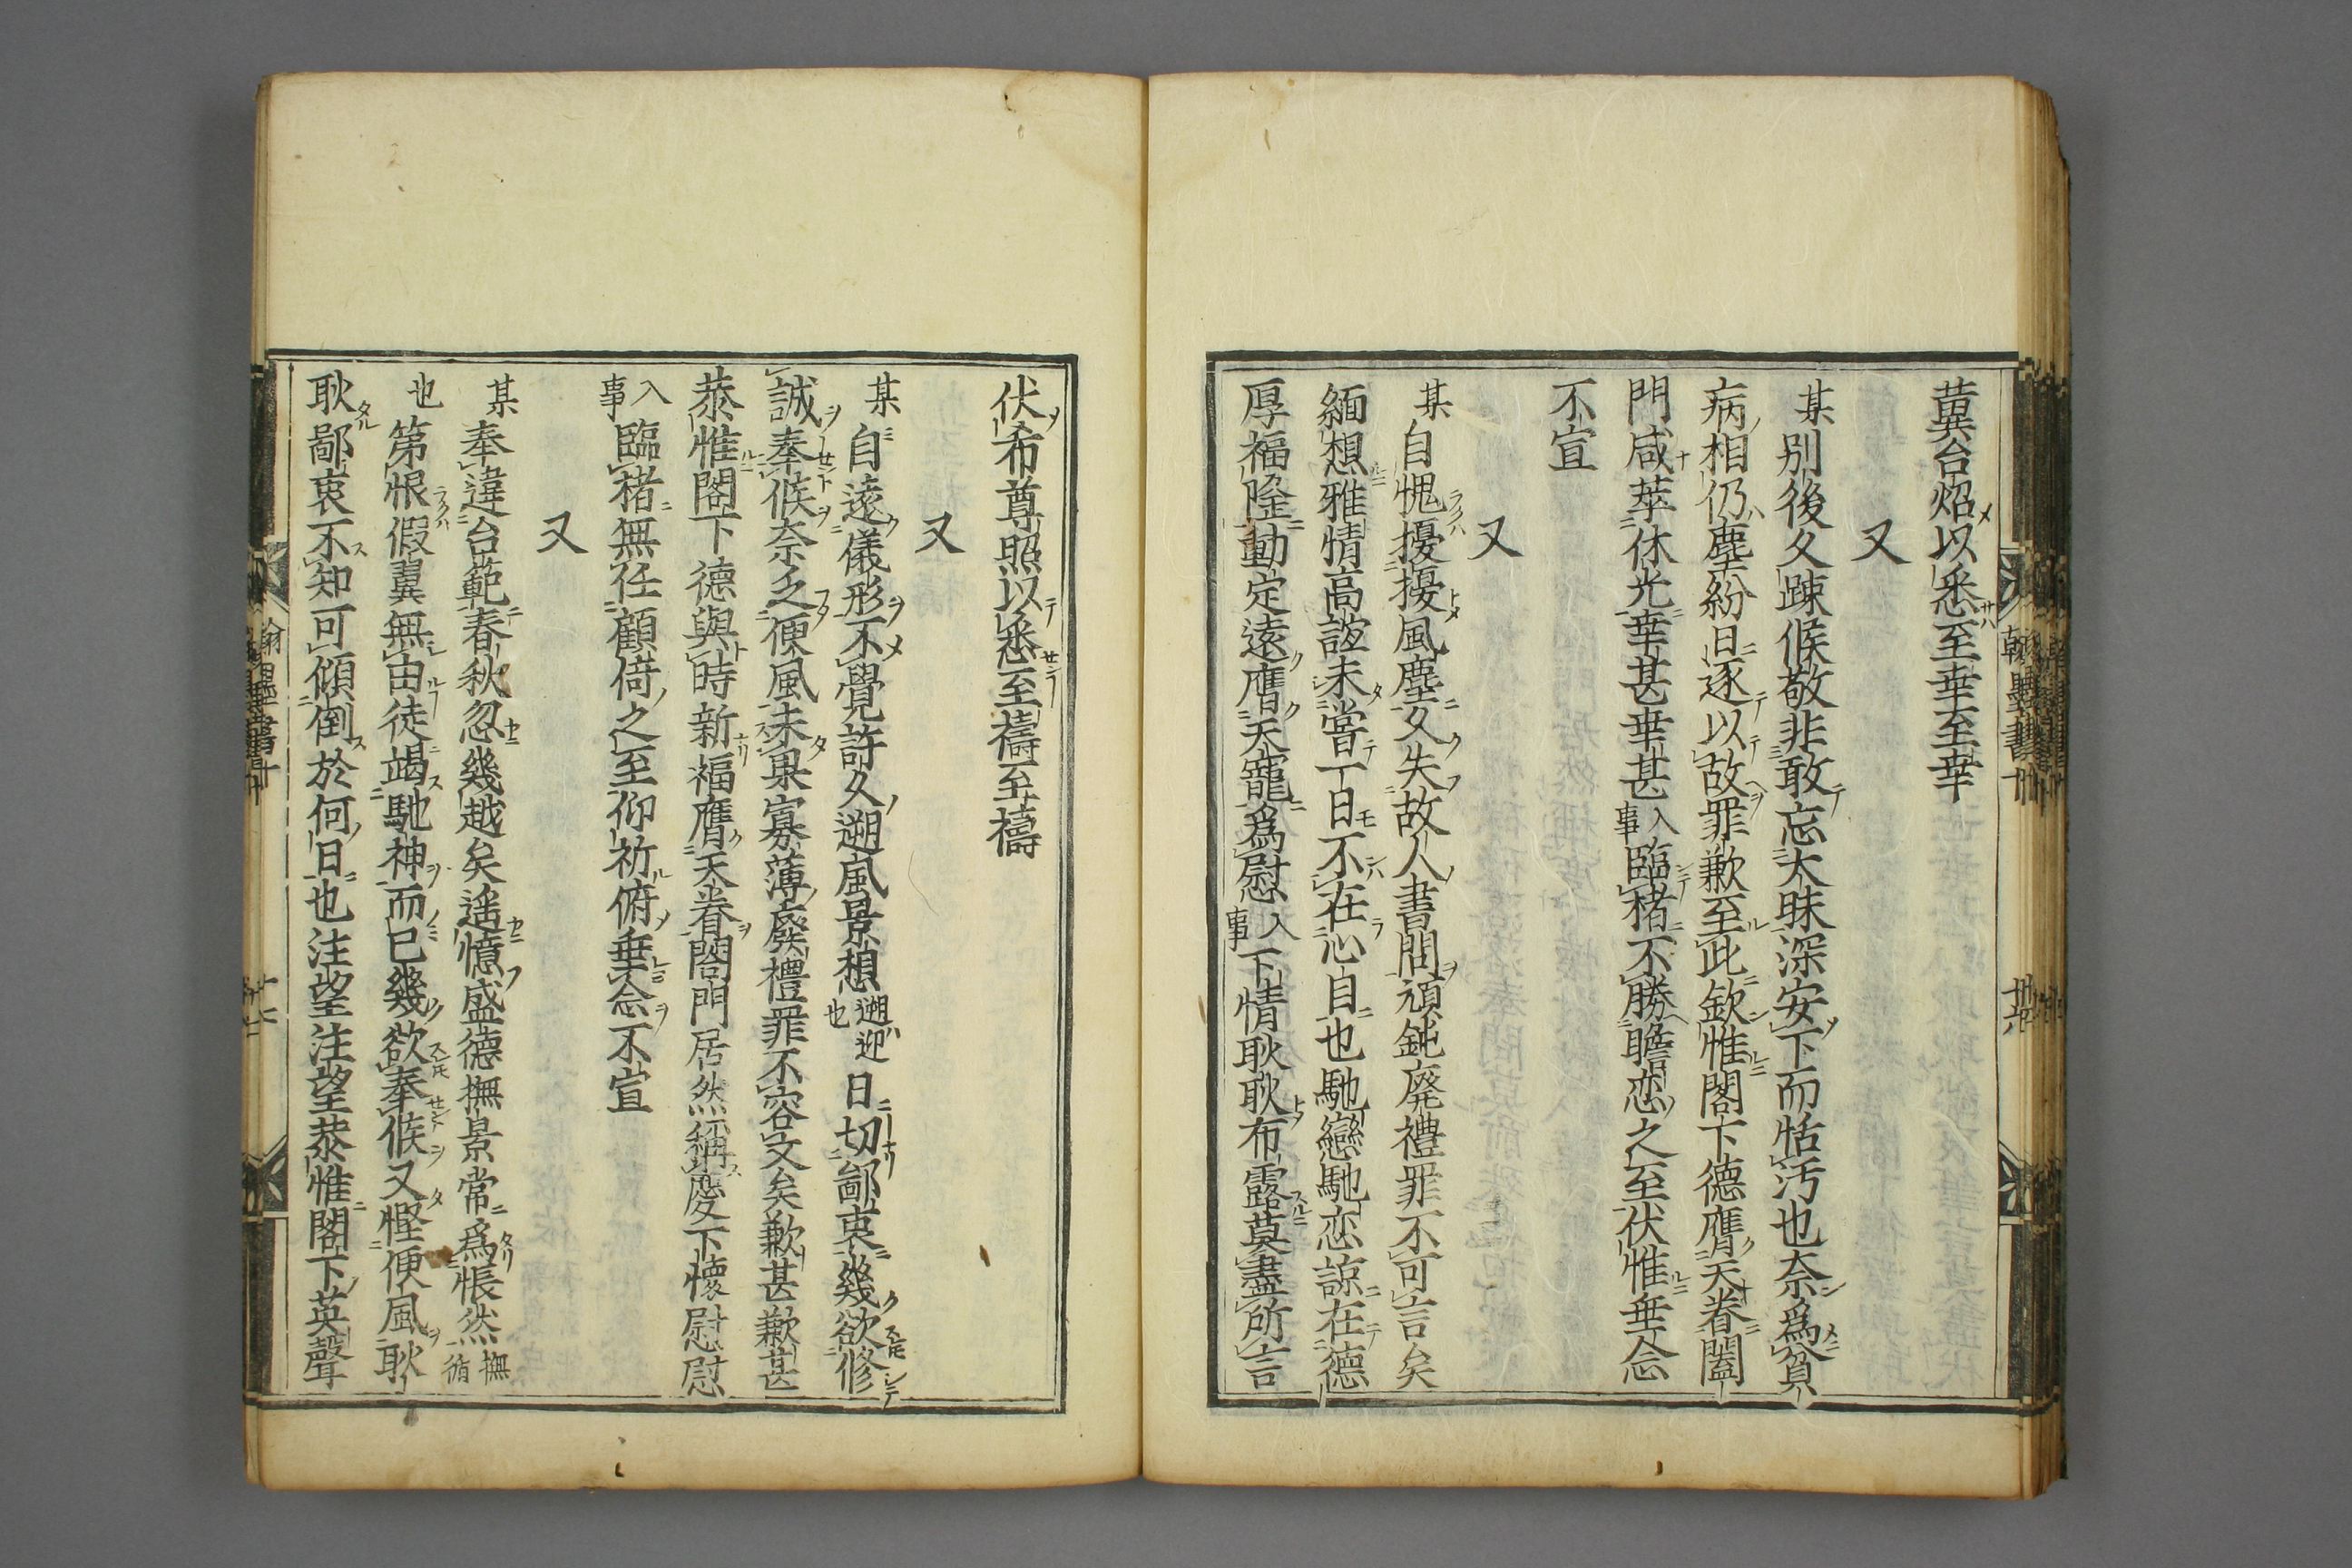 冀台炤以悉至幸至幸
又
某別後久踈候敬非敢忘太昧深安下而恬汚也奈爲貧
病相仍塵紛日逐以故罪歉至此欽惟閣下德膺天眷闔
門咸萃休光幸甚幸甚入事臨楮不勝瞻恋之至伏惟垂念
不宣
又
某自愧擾擾風塵久失故人書問頑鈍廃禮罪不可言矣
緬想雅情高誼未嘗一日不在心自也馳戀馳恋諒在德
厚福隆動定遠膺天寵爲慰入事下情耿耿布露莫盡所言
伏希尊照以悉至禱至禱
又
某自遠儀形不覺許久遡風景想遡迎也日切鄙衷幾欲修
誠奉候奈乏便風未果寡薄廢禮罪不容文矣歉甚歉甚
恭惟閣下德與時新福膺天眷閤門居然稱慶下懷慰慰
入事臨楮無任顧倚之至仰祈俯垂念不宣
又
某奉違台範春秋忽幾越矣遥憶盛德撫景常爲悵然撫循
也第恨假翼無由徒竭馳神而已幾欲奉候又慳便風耿
耿鄙衷不知可傾倒於何日也注望注望恭惟閣下英聲